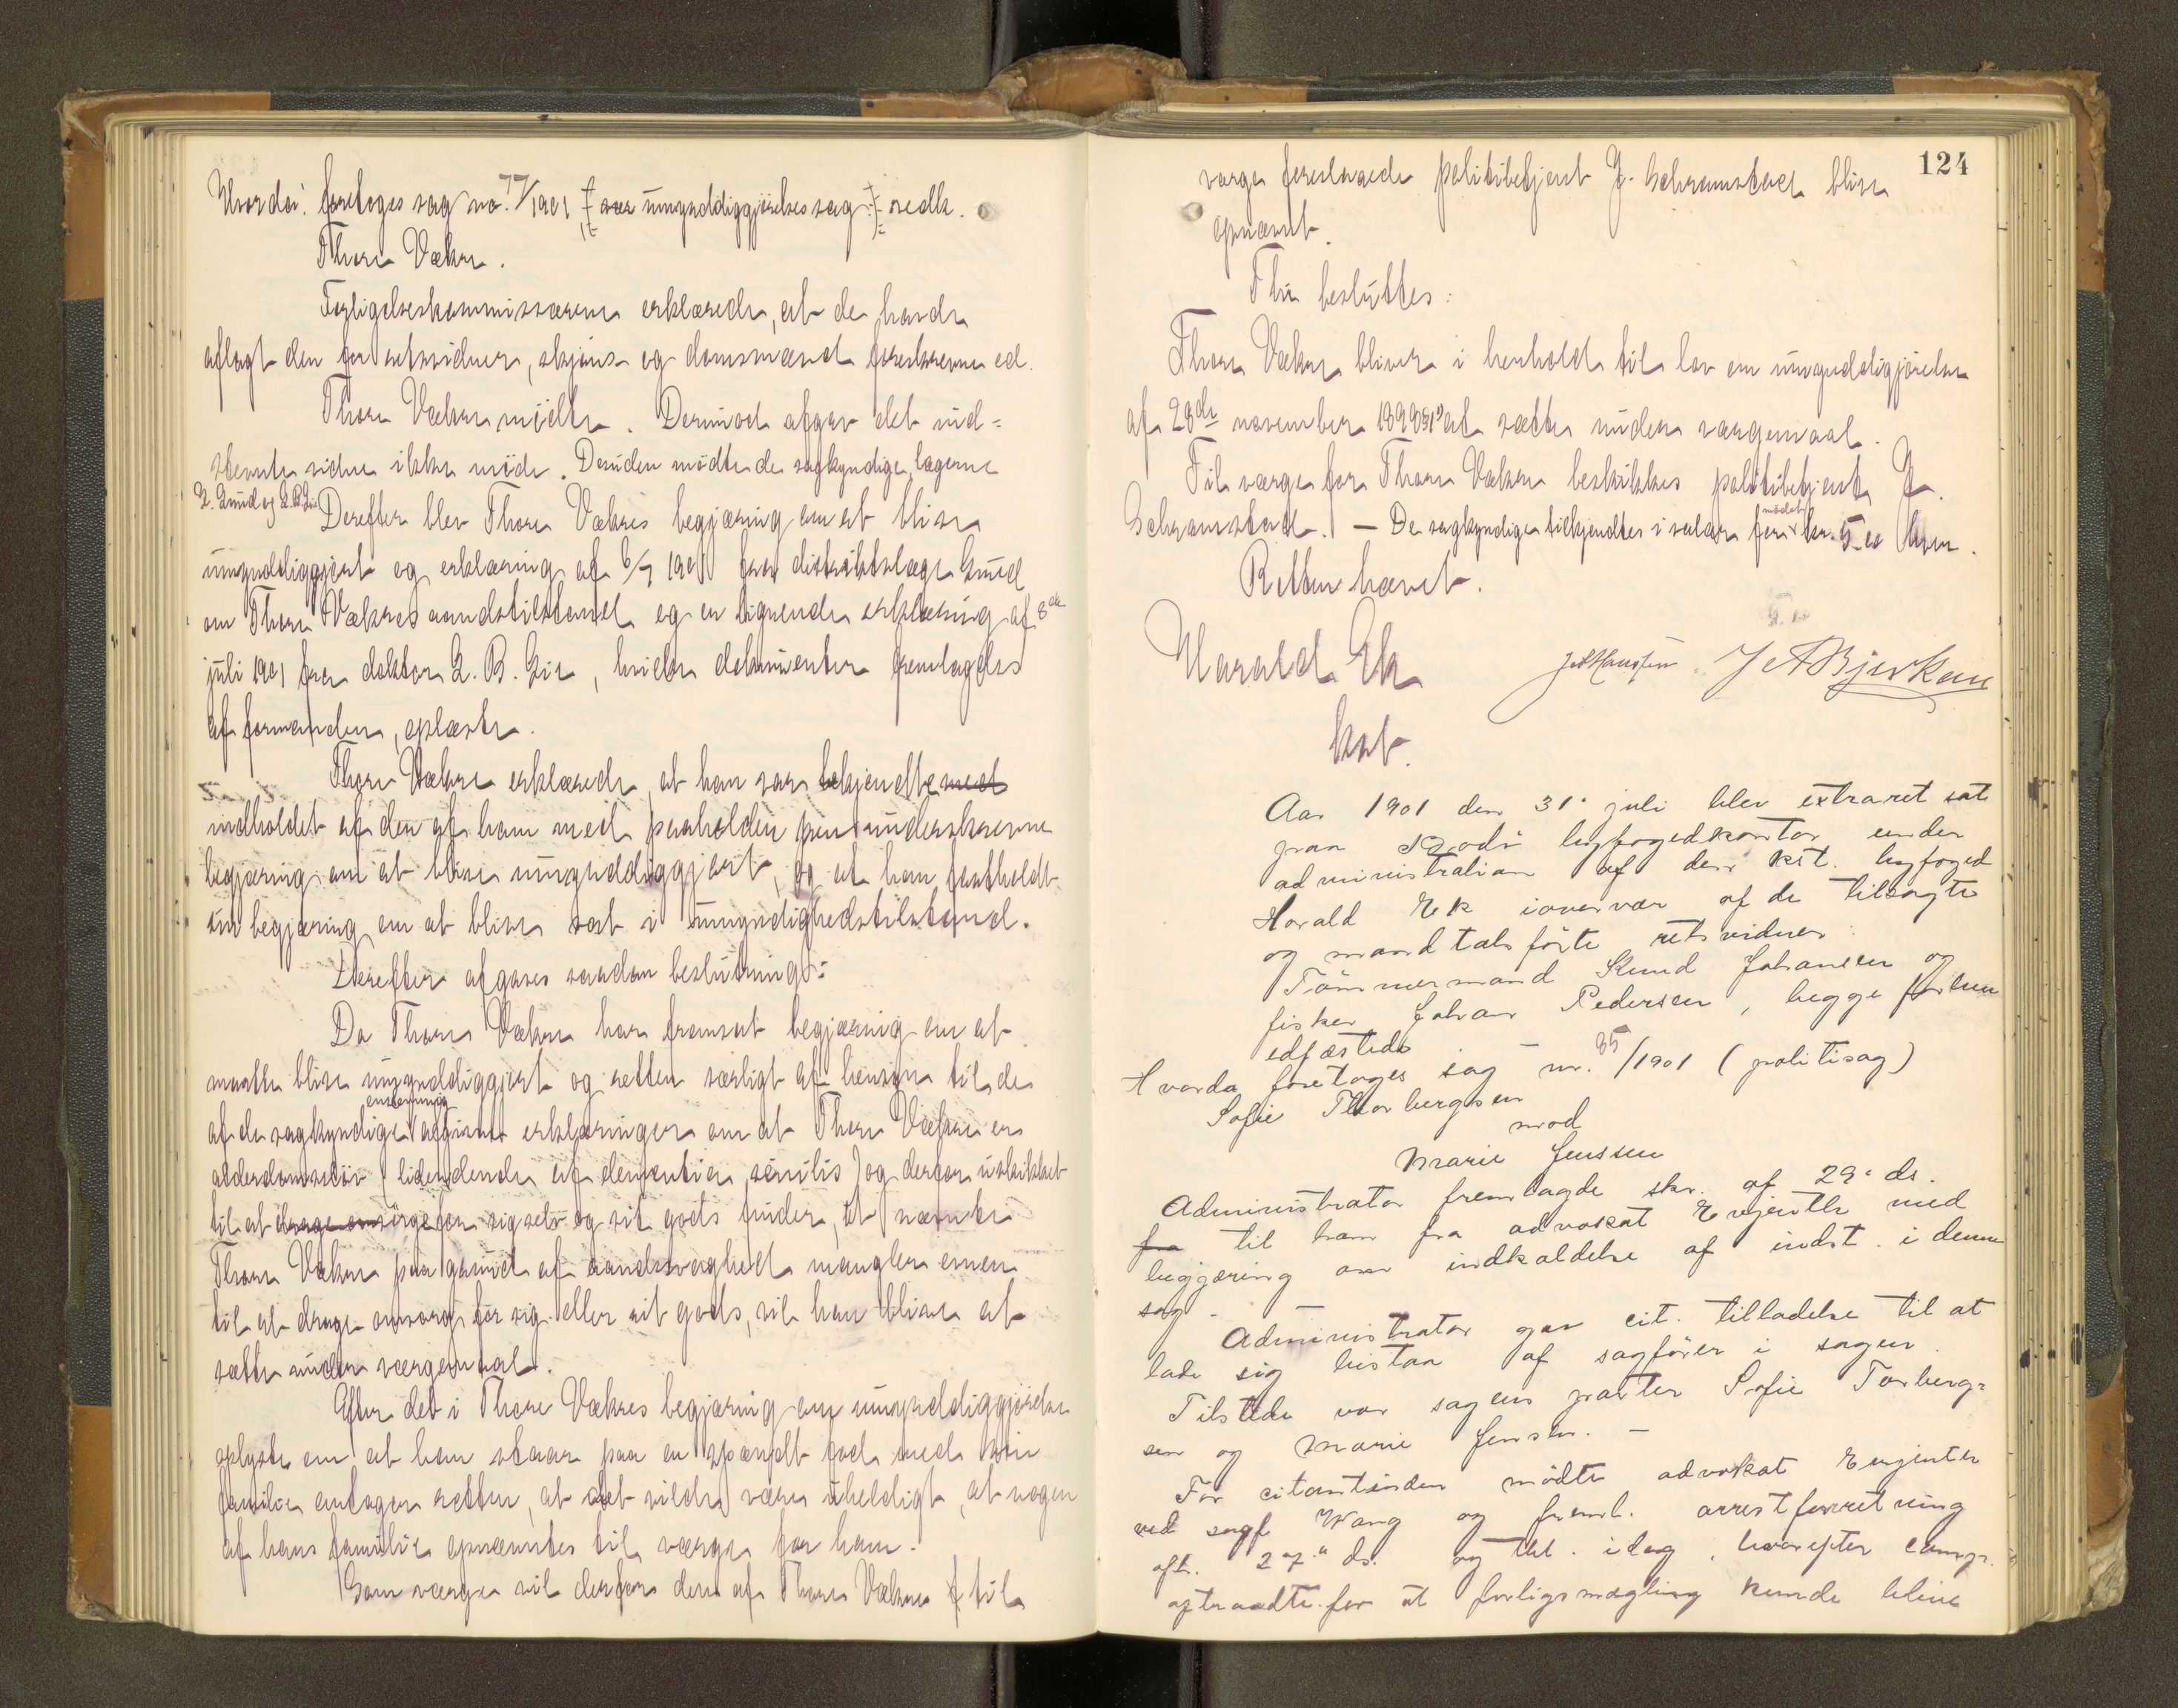 Hvorda: foretoges sag no. 77/1901 (umyndiggjørelsessag) vedk.
Thore Vækre.
Forligelseskommissærerne erklærede, at de havde
aflagt den for retsvidner, skjøns- og domsmænd foreskrevne ed.
Thore Vækre mödte. Derimod afgav det ud-
stevnte vidne ikke möde. Desuden mödte de sagkyndige lægerne
Derefter blev Thore Vækres begjæring om at blive
umyndiggjort og erklæring af 6/7 1901 fra distriktslæge
om Thore Vækres aandstilstand og en lignende erklæring af 8de
juli 1901 fra doktor L. B. Lie, hvilke dokumenter fremlagdes
af formanden, oplæste.
Thore Vækre erklærede, at han var bekjendt med
indholdet af den af ham med paaholden pen underskrevne
begjæring om at blive umyndiggjort, og at han fastholdt
sin begjæring om at blive sat i umyndighedstilstand.
Derefter afgaves saadan beslutning:
Da Thore Vækre har fremsat begjæring om at
maatte blive umyndiggjort og retten særligt af hensyn til de
af de sagkyndige enstemmig afgivne erklæringer om at Thore Vækre er
alderdomssløv (lidende af dementia senilis) og derfor uskikket
til at sörge for sig selv og sit gods finder, at nævnte
Thore Vækre paa grund af aandssvaghed mangler evnen
til at drage omsorg for sig eller sit gods, vil han blive at
sætte under værgemaal.
Efter det i Thore Vækres begjæring om umyndiggjørelse
oplyste om at han staar paa en spændt fod med sin
familie antager retten, at det vilde være uheldigt, at nogen
af hans familie opnævntes til værge for ham.
Som værge vil derfor den af Thore Vækre til
124
værge foreslaaede politibetjent J. Schramstad blive
opnævnt.
Thi besluttes:
Thore Vækre bliver i henhold til lov om umyndiggjørelse
af 28de november 1898 § 1 at sætte under værgemaal.
Til værge for Thore Vækre beskikkes politibetjent J.
Schramstad. – De sagkyndige tilkjendtes i salær for mödet kr. 5.00 hver.
Retten hævet.
Harald Ek J A Bjerkan
kst.
Aar 1901 den 31. juli blev extraret sat
paa Bodö byfogedkontor under
administration af den kst. byfoged
Harald Ek iovervær af de tilsagte
og mandtalsförte retsvidner:
Tömmermand Knud Johansen og
fisker Johan Pedersen, begge forhen
edfæstede –
Hvorda foretoges sag nr. 85/1901 (politisag)
Sofie Thorbergsen
mod
Marie Jenssen
Administrator fremlagde skr. af 29. ds.
fra til ham fra advokat Evjenth med
begjæring om indkaldelse af indst. i denne
sag. –
Administrator gav cit. tilladelse til at
lade sig bistaa af sagförer i sagen.
Tilstede var sagens parter Sofie Torberg-
sen og Marie Jensen. –
For citantinden mödte advokat Evjenth
ved sagf. Wang og freml. arrestforretning
afh. 27de ds. og tbl. idag, hvorefter comp.
aftraadte for at forligsmægling kunde blive